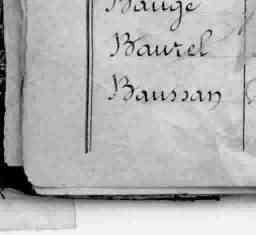 Baugé
Baurel
Baussan